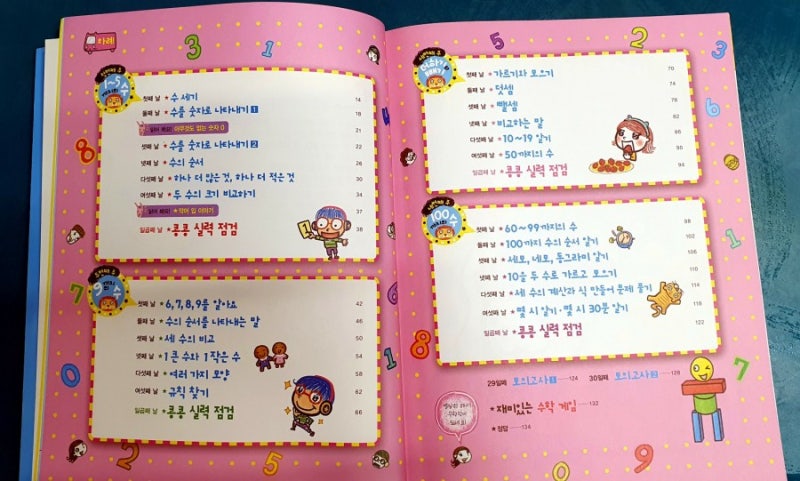 차례
첫째 주
1~5 수
첫째 날 ★ 수 세기 14
둘째 날 ★ 수를 숫자로 나타내기 1 18
읽어 봐요! 아무것도 없는 숫자 0 21
셋째 날 ★ 수를 숫자로 나타내기 2 22
넷째 날 ★ 수의 순서 26
다섯째 날 ★ 하나 더 많은 것, 하나 더 적은 것 30
여섯째 날 ★ 두 수의 크기 비교하기 34
읽어 봐요! 37
일곱째 날 ★ 콩콩 실력 점검 38
둘째 주
9 수
첫째 날 ★ 6, 7, 8, 9를 알아요 42
둘째 날 ★ 수의 순서를 나타내는 말 46
셋째 날 ★ 세 수의 비교 50
넷째 날 ★ 1 큰 수와 1 작은 수 54
다섯째 날 ★ 여러 가지 모양 58
여섯째 날 ★ 규칙 찾기 62
일곱째 날 ★ 콩콩 실력 점검 66
셋째 주
첫째 날 ★ 가르기와 모으기 70
둘째 날 ★ 덧셈 74
셋째 날 ★ 뺄셈 78
넷째 날 ★ 비교하는 말 82
다섯째 날 ★ 10~19 알기 86
여섯째 날 ★ 50까지의 수 90
일곱째 날 ★ 콩콩 실력 점검 94
넷째 주
100 수
첫째 날 ★ 60~99까지의 수 98
둘째 날 ★ 100까지 수의 순서 알기 102
셋째 날 ★ 세모, 네모, 동그라미 알기 106
넷째 날 ★ 10을 두 수로 가르고 모으기 110
다섯째 날 ★ 세 수의 계산과 식 만들어 문제 풀기 114
여섯째 날 ★ 몇 시 알기·몇 시 30분 알기 118
일곱째 날 ★ 콩콩 실력 점검 122
29일째 모의고사 1 124 30일째 모의고사 2 128
★ 재미있는 수학 게임 132
★ 정답 134